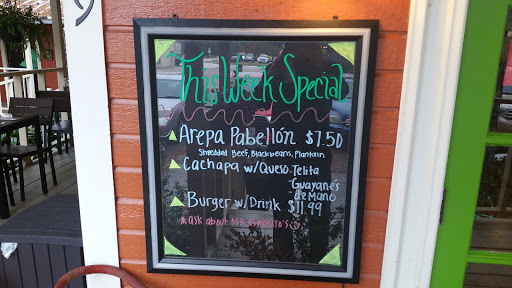 This Week Special
Arepa Pabellón $7.50
Shredded Beef, Blackbeans, Plantain
Cachapa w/Queso-Telita
-Guayanés
de Mano
Burger w/Drink $11.99
*ask about our espresso's